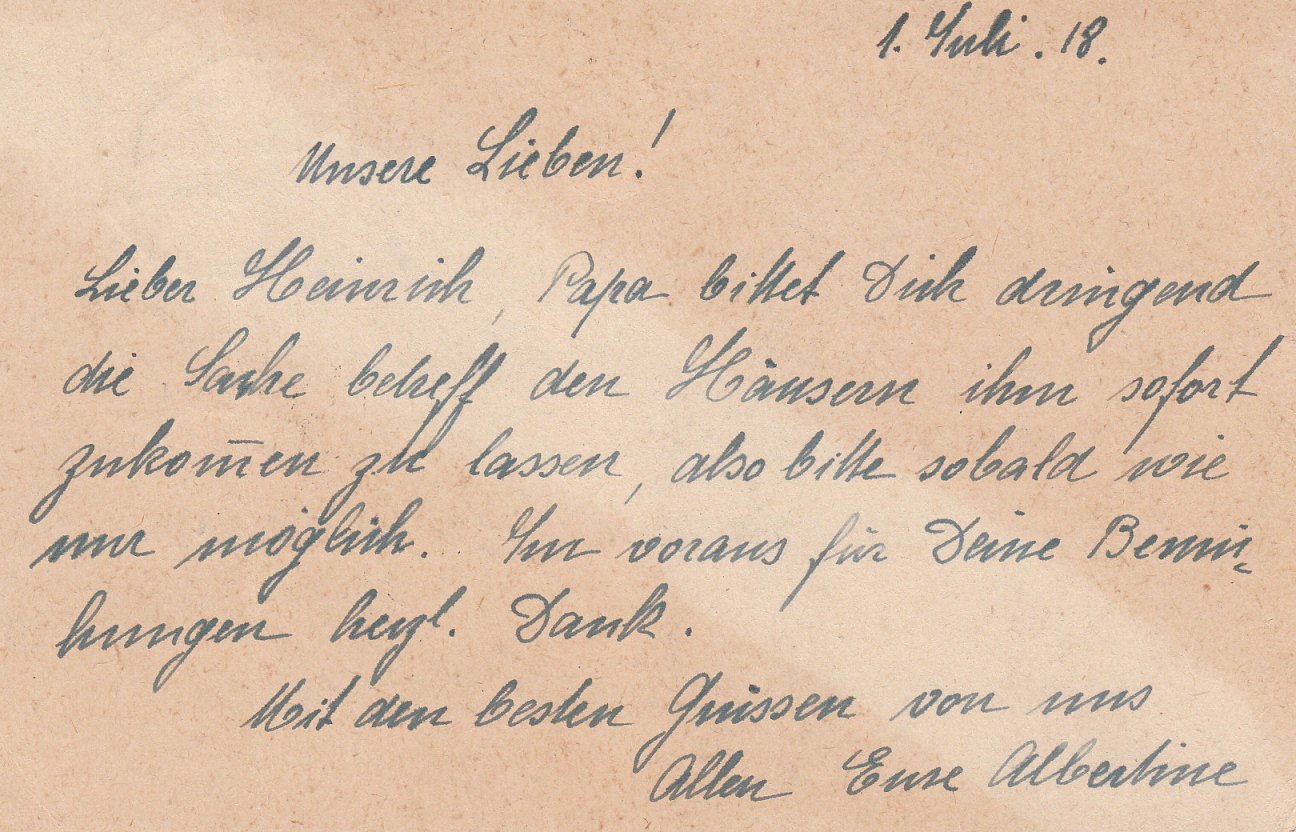 1. Juli. 18.
Unsere Lieben!
Lieber Heinrich, Papa bittet Dich dringend
die Sache betreff den Häusern ihm sofort
zukom̄en zu lassen, also bitte sobald wie
nur möglich. Im voraus für Deine Bemü-
hungen herzl. Dank.
Mit den besten Grüssen von uns
Allen Eure Albertine